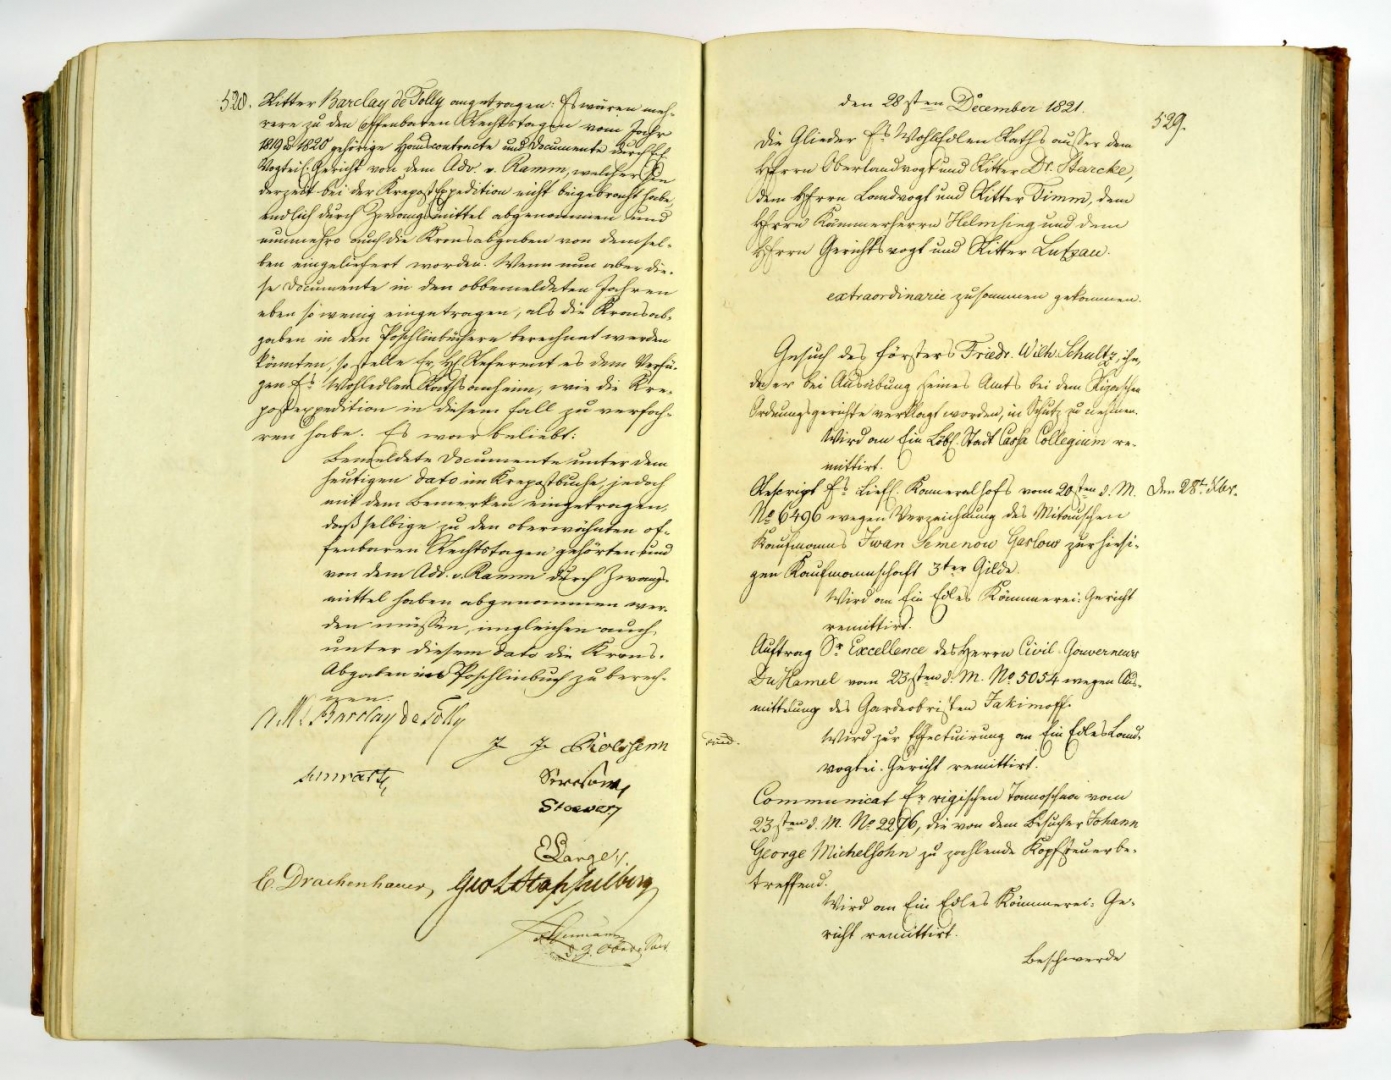 528.
Ritter Barclay de Tolly angetragen: Es wären meh-
rere zu den offenbaren Rechtstagen vom Jahr
1819 & 1820 gehörige Hauscontracte und Documente durch Ein
Vogteil. Gericht von dem Adv. v. Ramm, welcher sie
derzeit bei der Krepostexpedition nicht beigebracht habe,
endlich durch Zwangsmittel abgenommen und
nunmehro auch die Kronsabgaben von demsel-
ben eingeliefert worden. Wenn nun aber die-
se Documente in den obbemeldeten Jahren
eben so wenig eingetragen, als die Kronsab-
gaben in den Poschlinbüchern berechnet werden
könnten, so stelle Er, Hl. Referent es dem Verfü-
gen Es Wohledlen Raths anheim, wie die Kre-
postexpedition in diesem Fall zu verfah-
ren habe. Es war beliebt:
Bemeldete Documente unter dem
heutigen dato im Krepostbuche, jedoch
mit dem Bemerken eingetragen,
daß selbige zu den oberwähnten of-
fenbaren Rechtstagen gehörten und
von dem Adv. v. Ramm durch Zwangs-
mittel haben abgenommen wer-
den müssen, imgleichen auch
unter diesem dato die Krons-
Abgaben ins Poschlinbuch zu berech-
nen.
Barclay de Tolly
J. J. Rolssenn
Schwartz
Stoever
Lange
C. Drachenhauer,
529.
den 28sten December 1821.
Die Glieder Es Wohledlen Raths ausser dem
Herrn Oberlandvogt und Ritter Dr. Starcke,
dem Herrn Landvogt und Ritter Timm, dem
Herrn Kämmerherrn Helmsing und dem
Herrn Gerichtsvogt und Ritter Lutzau.
extraordinarie zusammen gekommen.
Gesuch des Försters Friedr. Wilh. Schultz, ihn,
da er bei Ausübung seines Amts bei dem Rigaschen
Ordnungsgerichte verklagt worden, in Schutz zu nehmen.
Wird an Ein Löbl. Stadt Cassa Collegium re-
mittirt.
Rescript Es Liefl. Kameralhofs vom 20sten d. M.
Den 28t. Xbr.
No 6496 wegen Verzeichnung des Mitauschen
Kaufmanns Iwan Semenow Garlow zur hiesi-
gen Kaufmannschaft 3ter Gilde.
Wird an Ein Edles Kämmerei-Gericht
remittirt.
Auftrag Sr Excellence des Herrn Civil-Gouverneurs
Du Hamel vom 23sten d. M. No 5054 wegen Aus-
mittelung des Gardeobristen Jakimoff.
Wird zur Effectuirung an Ein Edles Land-
vogtei-Gericht remittirt.
Communicat Er rigischen Tamoschna vom
23sten d. M. No 2276, die von dem Besucher Johann
George Michelsohn zu zahlende Kopfsteuer be-
treffend.
Wird an Ein Edles Kämmerei-Ge-
richt remittirt.
Beschwerde